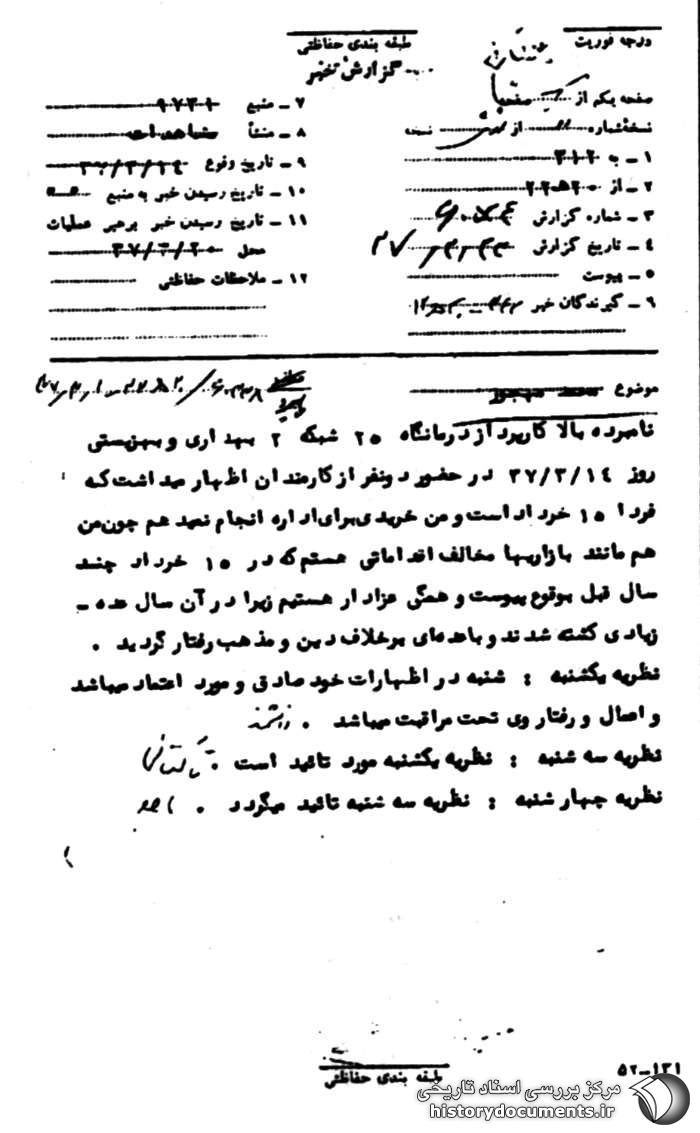 درجه فوریت
طبقه بندی حفاظتی
گزارش خبر
صفحه یکم از صفحه
نسخه شماره از نسخه
۱ ـ به ۳۱۲
۲ ـ از ۲۰ ه ۲۲
۳ ـ شماره گزارش
۴ ـ تاریخ گزارش
۵ ـ پیوست
۶ ـ گیرندگان خبر
۷ ـ منبع ۹۷۳۱
۸ ـ منشأ مشاهدات
۹ ـ تاریخ وقوع ۳۷/۳/۱۴
۱۰ ـ تاریخ رسیدن خبر به منبع
۱۱ ـ تاریخ رسیدن خبر برهبر عملیات
محل ۳۷/۳/۲۰
۱۲ ـ ملاحظات حفاظتی
موضوع مهجور
نامبرده بالا کارپرداز درمانگاه ۲۵ شبکه ۲ بهداری و بهزیستی
روز ۳۷/۳/۱۴ در حضور دونفر از کارمندان اظهار میداشت که
فردا ۱۵ خرداد است و من خریدی برای اداره انجام نمیدهم چون من
هم مانند بازاریها مخالف اقداماتی هستم که در ۱۵ خرداد چند
سال قبل بوقوع پیوست و همگی عزادار هستیم زیرا در آن سال عده ـ
زیادی کشته شدند و با عده‌ای برخلاف دین و مذهب رفتار گردید .
نظریه یکشنبه : شنبه در اظهارات خود صادق و مورد اعتماد میباشد
و اعمال و رفتار وی تحت مراقبت میباشد .
نظریه سه شنبه : نظریه یکشنبه مورد تائید است .
نظریه چهارشنبه : نظریه سه شنبه تائید میگردد .
طبقه بندی حفاظتی
۵۲-۱۳۱
مرکز بررسی اسناد تاریخی
historydocuments.ir